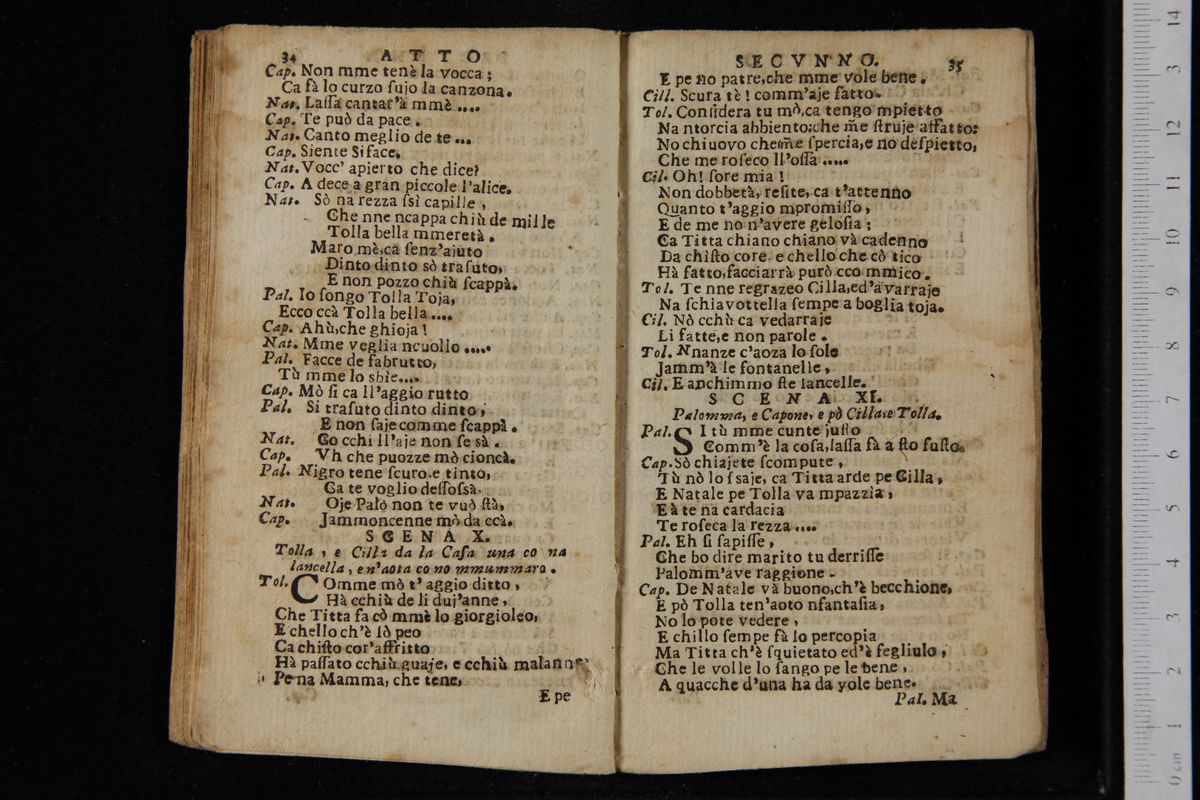 34 ATTO
Cap. Non mme tenè la vocca;
Ca fà lo curzo ſujo la canzona.
Nat. Laſſa cantar'à mmè ....
Cap. Te può da pace.
Nat. Canto meglio de te ...
Cap. Siente Siface.
Nat. Vocc' apierto che dice?
Cap. A dece a gran piccole l'alice.
Nat. Sò na rezza ſsì capille,
Che nne ncappa chiù de mille
Tolla bella mmeretà.
Maro mè, ca ſenz'ajuto
Dinto dinto sò traſuto,
E non pozzo chiù ſcappà.
Pal. Io ſongo Tolla Toja,
Ecco ccà Tolla bella ....
Cap. Ahù, che ghioja!
Nat. Mme veglia ncuollo .....
Pal. Facce de fabrutto,
Tù mme lo sbie....
Cap. Mò ſi ca ll'aggio rutto
Pal. Si traſuto dinto dinto;
E non ſaje comme ſcappà.
Nat. Co cchi ll'aje non ſe sà.
Cap. Vh che puozze mò cioncà.
Pal. Nigro tene ſcuro e tinto,
Ca te voglio deſſoſsà.
Nat. Oje Palò non te vuò ſtà,
Cap. Jammoncenne mò da ccà.
SCENA X.
Tolla, e Cilla da la Caſa una co na
lancella, e n'aota co no mmummaro.
Tol. COmme mò t'aggio ditto,
Hà cchiù de li duj'anne,
Che Titta fa cò mmè lo giorgioleo,
E chello ch'è lò peo
Ca chiſto cor'affritto
Hà paſſato cchiù guaje, e cchiù malanne
Pe na Mamma, che tene,
E pe
SECVNNO. 35
E pe no patre, che mme vole bene.
Cill. Scura tè! comm'aje fatto.
Tol. Conſidera tu mò, ca tengo mpietto
Na ntorcia abbiento: che m̃e ſtruje affatto:
No chiuovo chem̃e ſpercia, e no deſpietto,
Che me roſeco ll'oſſa .....
Cil. Oh! ſore mia!
Non dobbetà, reſite, ca t'attenno
Quanto t'aggio mpromiſſo,
E de me no n'avere geloſia;
Ca Titta chiano chiano và cadenno
Da chiſto core, e chello che cò tico
Hà fatto, facciarrà purò cco mmico.
Tol. Te nne regrazeo Cilla, ed'avarraje
Na ſchiavottella ſempe a boglia toja.
Cil. Nò cchù ca vedarraje
Li fatte, e non parole.
Tol. Nnanze c'aoza lo ſole
Jamm'à le fontanelle,
Cil. E anchimmo ſte lancelle.
SCENA XI.
Palomma, e Capone, e pò Cilla, e Tolla.
Pal. SI tù mme cunte juſto
Comm'è la coſa, laſſa fà a ſto fuſto.
Cap. Sò chiajete ſcompute,
Tù nò lo ſsaje, ca Titta arde pe Cilla,
E Natale pe Tolla va mpazzia,
E à te na cardacia
Te roſeca la rezza ....
Pal. Eh ſi ſapiſſe,
Che bo dire marito tu derriſſe
Palomm'ave raggione.
Cap. De Natale và buono, ch'è becchione,
E pò Tolla ten'aoto nfantaſia,
No lo pote vedere,
E chillo ſempe fà lo percopia
Ma Titta ch'è ſquietato ed'è fegliulo,
Che le volle lo ſango pe le bene,
A quacche d'una ha da vole bene.
Pal. Ma